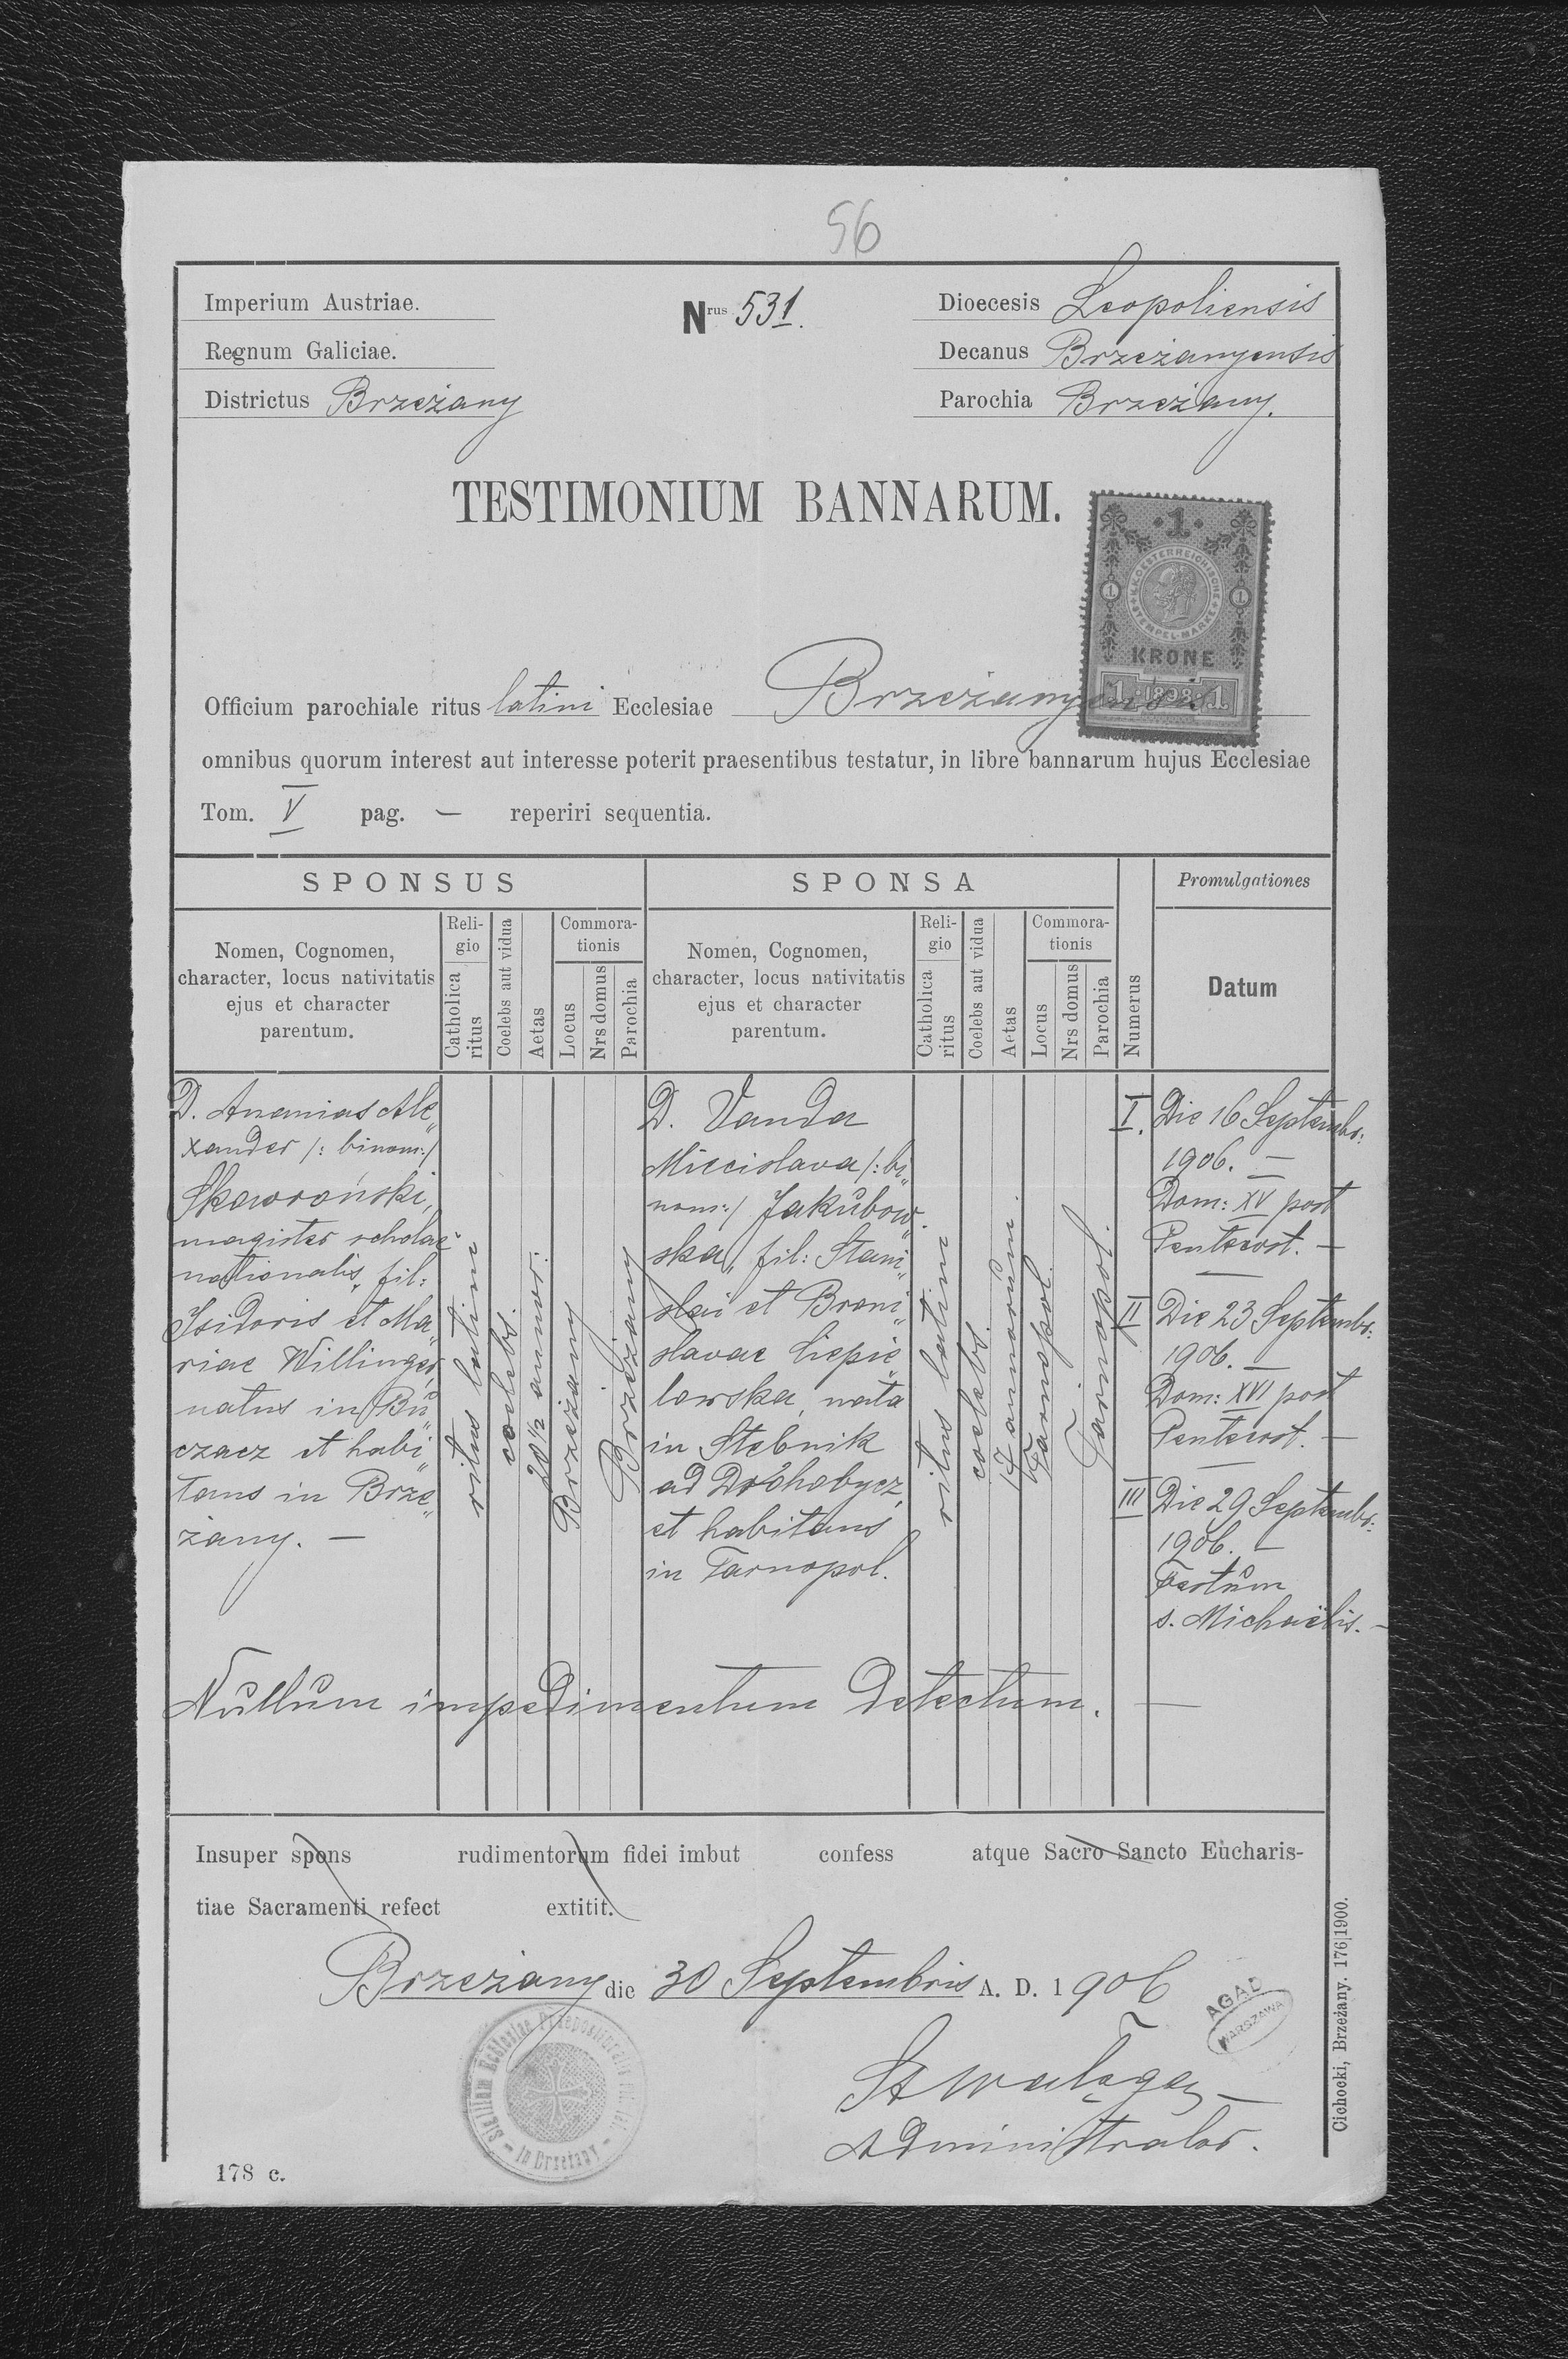 56
Imperium Austriae.
Regnum Galiciae.
Districtus Brzeżany
Nrus 531.
Dioecesis Leopoliensis
Decanus Brzeżanyensis
Parochia Brzeżany.
TESTIMONIUM BANNARUM.
1
K.K. OESTERREICHISCHE STEMPEL-MARKE
1 1
KRONE
1 1898 1
Officium parochiale ritus latini Ecclesiae Brzeżanyensis
omnibus quorum interest aut interesse poterit praesentibus testatur, in libre bannarum hujus Ecclesiae
Tom. V pag. — reperiri sequentia.
SPONSUS
Nomen, Cognomen,
character, locus nativitatis
ejus et character
parentum.
Reli-
gio
Catholica
ritus
Coelebs aut vidua
Aetas
Commora-
tionis
Locus
Nrs domus
Parochia
SPONSA
Nomen, Cognomen,
character, locus nativitatis
ejus et character
parentum.
Reli-
gio
Catholica
ritus
Coelebs aut vidua
Aetas
Commora-
tionis
Locus
Nrs domus
Parochia
Numerus
Promulgationes
Datum
D. Ananias Ale„
xander /: binom:/
Skowroński,
magister scholae
nationalis, fil:
Isidoris et Ma„
riae Willinger,
natus in Bu„
czacz et habi„
tans in Brze„
żany. —
ritus latini
coelebs.
20 1/2 annor:
Brzeżany
Brzeżany
D. Vanda
Miecislava /: bi„
nom:/ Jakubow„
ska, fil: Stani„
slai et Broni„
slavae Ciepie„
lowska, nata
in Stebnik
ad Drohobycz,
et habitans
in Tarnopol.
ritus latini
coelebs.
17 annorum.
Tarnopol.
Tarnopol.
I. Die 16 Septembr:
1906. —
Dom: XV post
Pentecost. —
II Die 23 Septembr:
1906. —
Dom: XVI post
Pentecost. —
III Die 29 Septembr:
1906. —
Festum
s. Michaëlis. —
Nullum impedimentum detectum. —
Insuper spons rudimentorum fidei imbut confess atque Sacro Sancto Eucharis-
tiae Sacramenti refect extitit.
Brzeżany die 30 Septembris A. D. 1906
AGAD
WARSZAWA
St Wałęga
Administrator.
Sigillum Ecclesiae Praepositoralis
in Brzeżany
178 c.
Cichocki, Brzeżany. 176|1900.